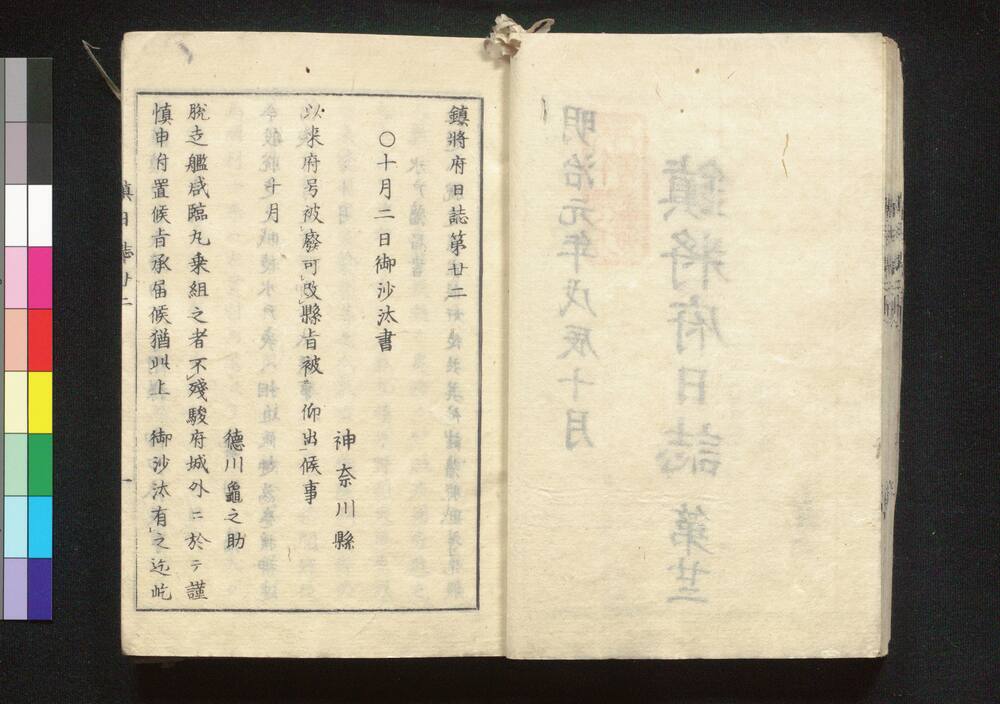 明治元年戊辰十月
鎮將府日誌 第廿二
鎮將府日誌第廿二
〇十月二日御沙汰書
神奈川縣
以来府号被廢可改縣旨被 仰出候事
十月
德川龜之助
脱走艦咸臨丸乗組之者不殘駿府城外ニ於テ謹
慎申付置候旨承届候猶此上 御沙汰有之迄屹
鎮日誌廿二 一